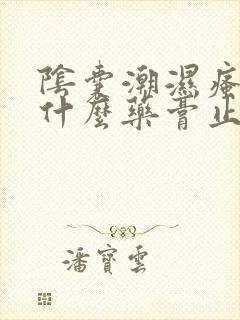 陰囊潮濕瘙
什麼藥膏止
潘寶雲